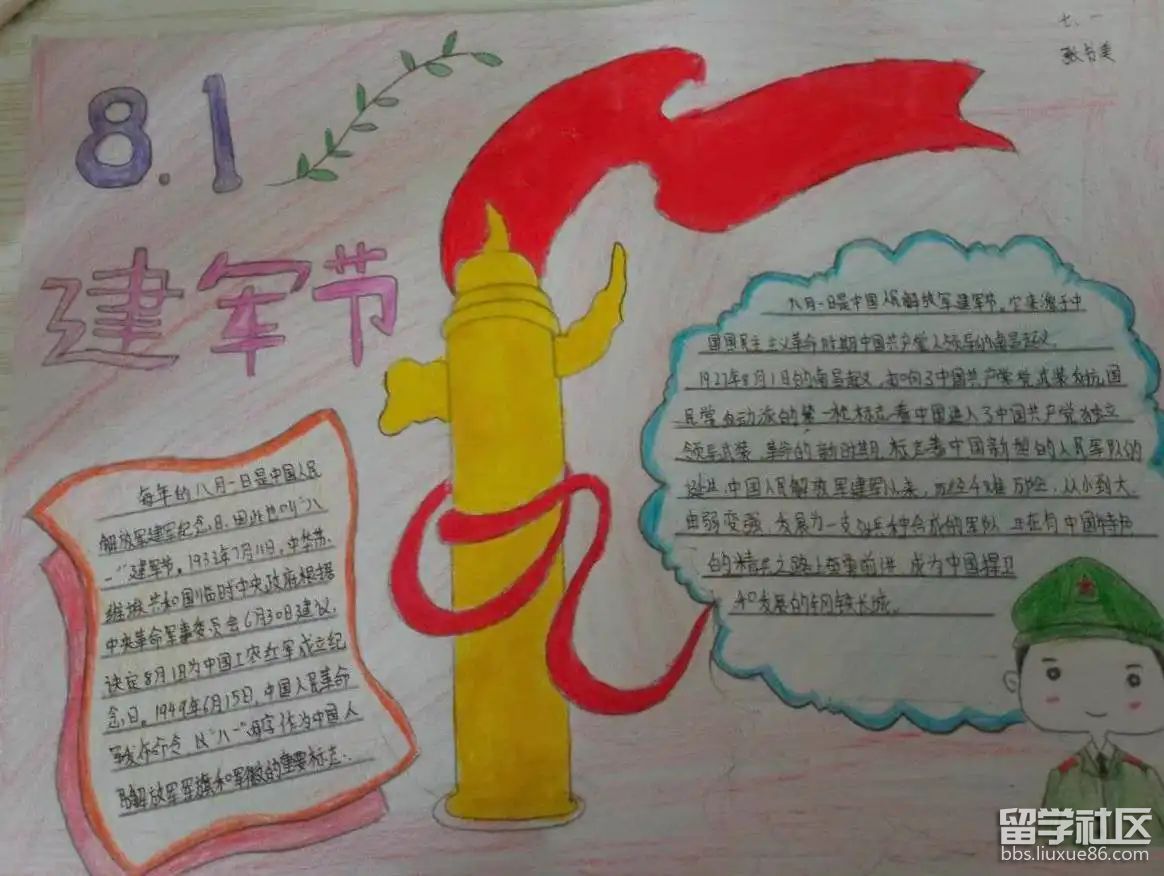 七、一
8.1
建军节
每年的八月一日是中国人民
解放军建军纪念日,因此也叫"八
一"建军节。1933年7月11日,中华苏
维埃共和国临时中央政府根据
中央革命军事委员会6月30日建议,
决定8月1日为中国工农红军成立纪
念日。1949年6月15日,中国人民革命
军发布命令 以"八一"两字作为中国人
民解放军军旗和军徽的重要标志.
八月一日是中国人民解放军建军节。它来源于中
国国民主主义革命时期中国共产党人领导的南昌起义
1927年8月1日的南昌起义,打响了中国共产党武装反抗国
民党反动派的第一枪,标志着中国进入了中国共产党独立
领导武装革命的新时期,标志着中国新型的人民军队的
诞生.中国人民解放军建军以来,历经千难万险,从小到大
由弱变强 发展为一支 兵种合成的军队,在有中国特色
的精兵之路上 前进 成为中国捍卫
和发展的钢铁长城。
留学社区
bbs.liuxue86.com